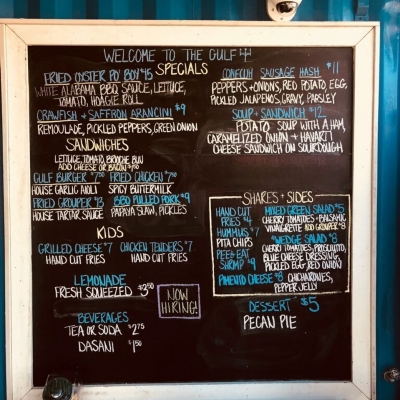 WELCOME TO THE GULF
SPECIALS
FRIED OYSTER PO BOY $15
WHITE ALABAMA BBQ SAUCE, LETTUCE,
TOMATO, HOAGIE ROLL
CRAWFISH & SAFFRON ARANCINI $9
REMOULADE, PICKLED PEPPERS, GREEN ONION
CONECUH SAUSAGE HASH $11
PEPPERS + ONIONS, RED POTATO, EGG,
PICKLED JALAPENOS, GRAVY, PARSLEY
SOUP + SANDWICH $12
POTATO SOUP WITH A HAM,
CARAMELIZED ONION + HAVARTI
CHEESE SANDWICH ON SOURDOUGH
SANDWICHES
LETTUCE, TOMATO, BRIOCHE BUN
ADD CHEESE OR BACON
GULF BURGER
HOUSE GARLIC AIOLI
FRIED CHICKEN
SPICY BUTTERMILK
FRIED GROUPER $13
HOUSE TARTAR SAUCE
BBQ PULLED PORK $9
PAPAYA SLAW, PICKLES
KIDS
GRILLED CHEESE $7
HAND CUT FRIES
CHICKEN TENDERS $7
HAND CUT FRIES
LEMONADE
FRESH SQUEEZED $3.50
NOW
HIRING!
BEVERAGES
TEA OR SODA $2.75
DASANI $1.50
SHARES + SIDES
HAND CUT
FRIES $4
HUMMUS $7
PITA CHIPS
PEEL & EAT
SHRIMP
PIMENTO CHEESE $8 CHICHARONES,
PEPPER JELLY
MIXED GREEN SALAD $5
CHERRY TOMATOES + BALSAMIC
VINAIGRETTE ADD GROUPER $8
WEDGE SALAD $8
CHERRY TOMATOES, PROSCIUTTO,
BLUE CHEESE DRESSING,
PICKLED EGG, RED ONION
DESSERT $5
PECAN PIE